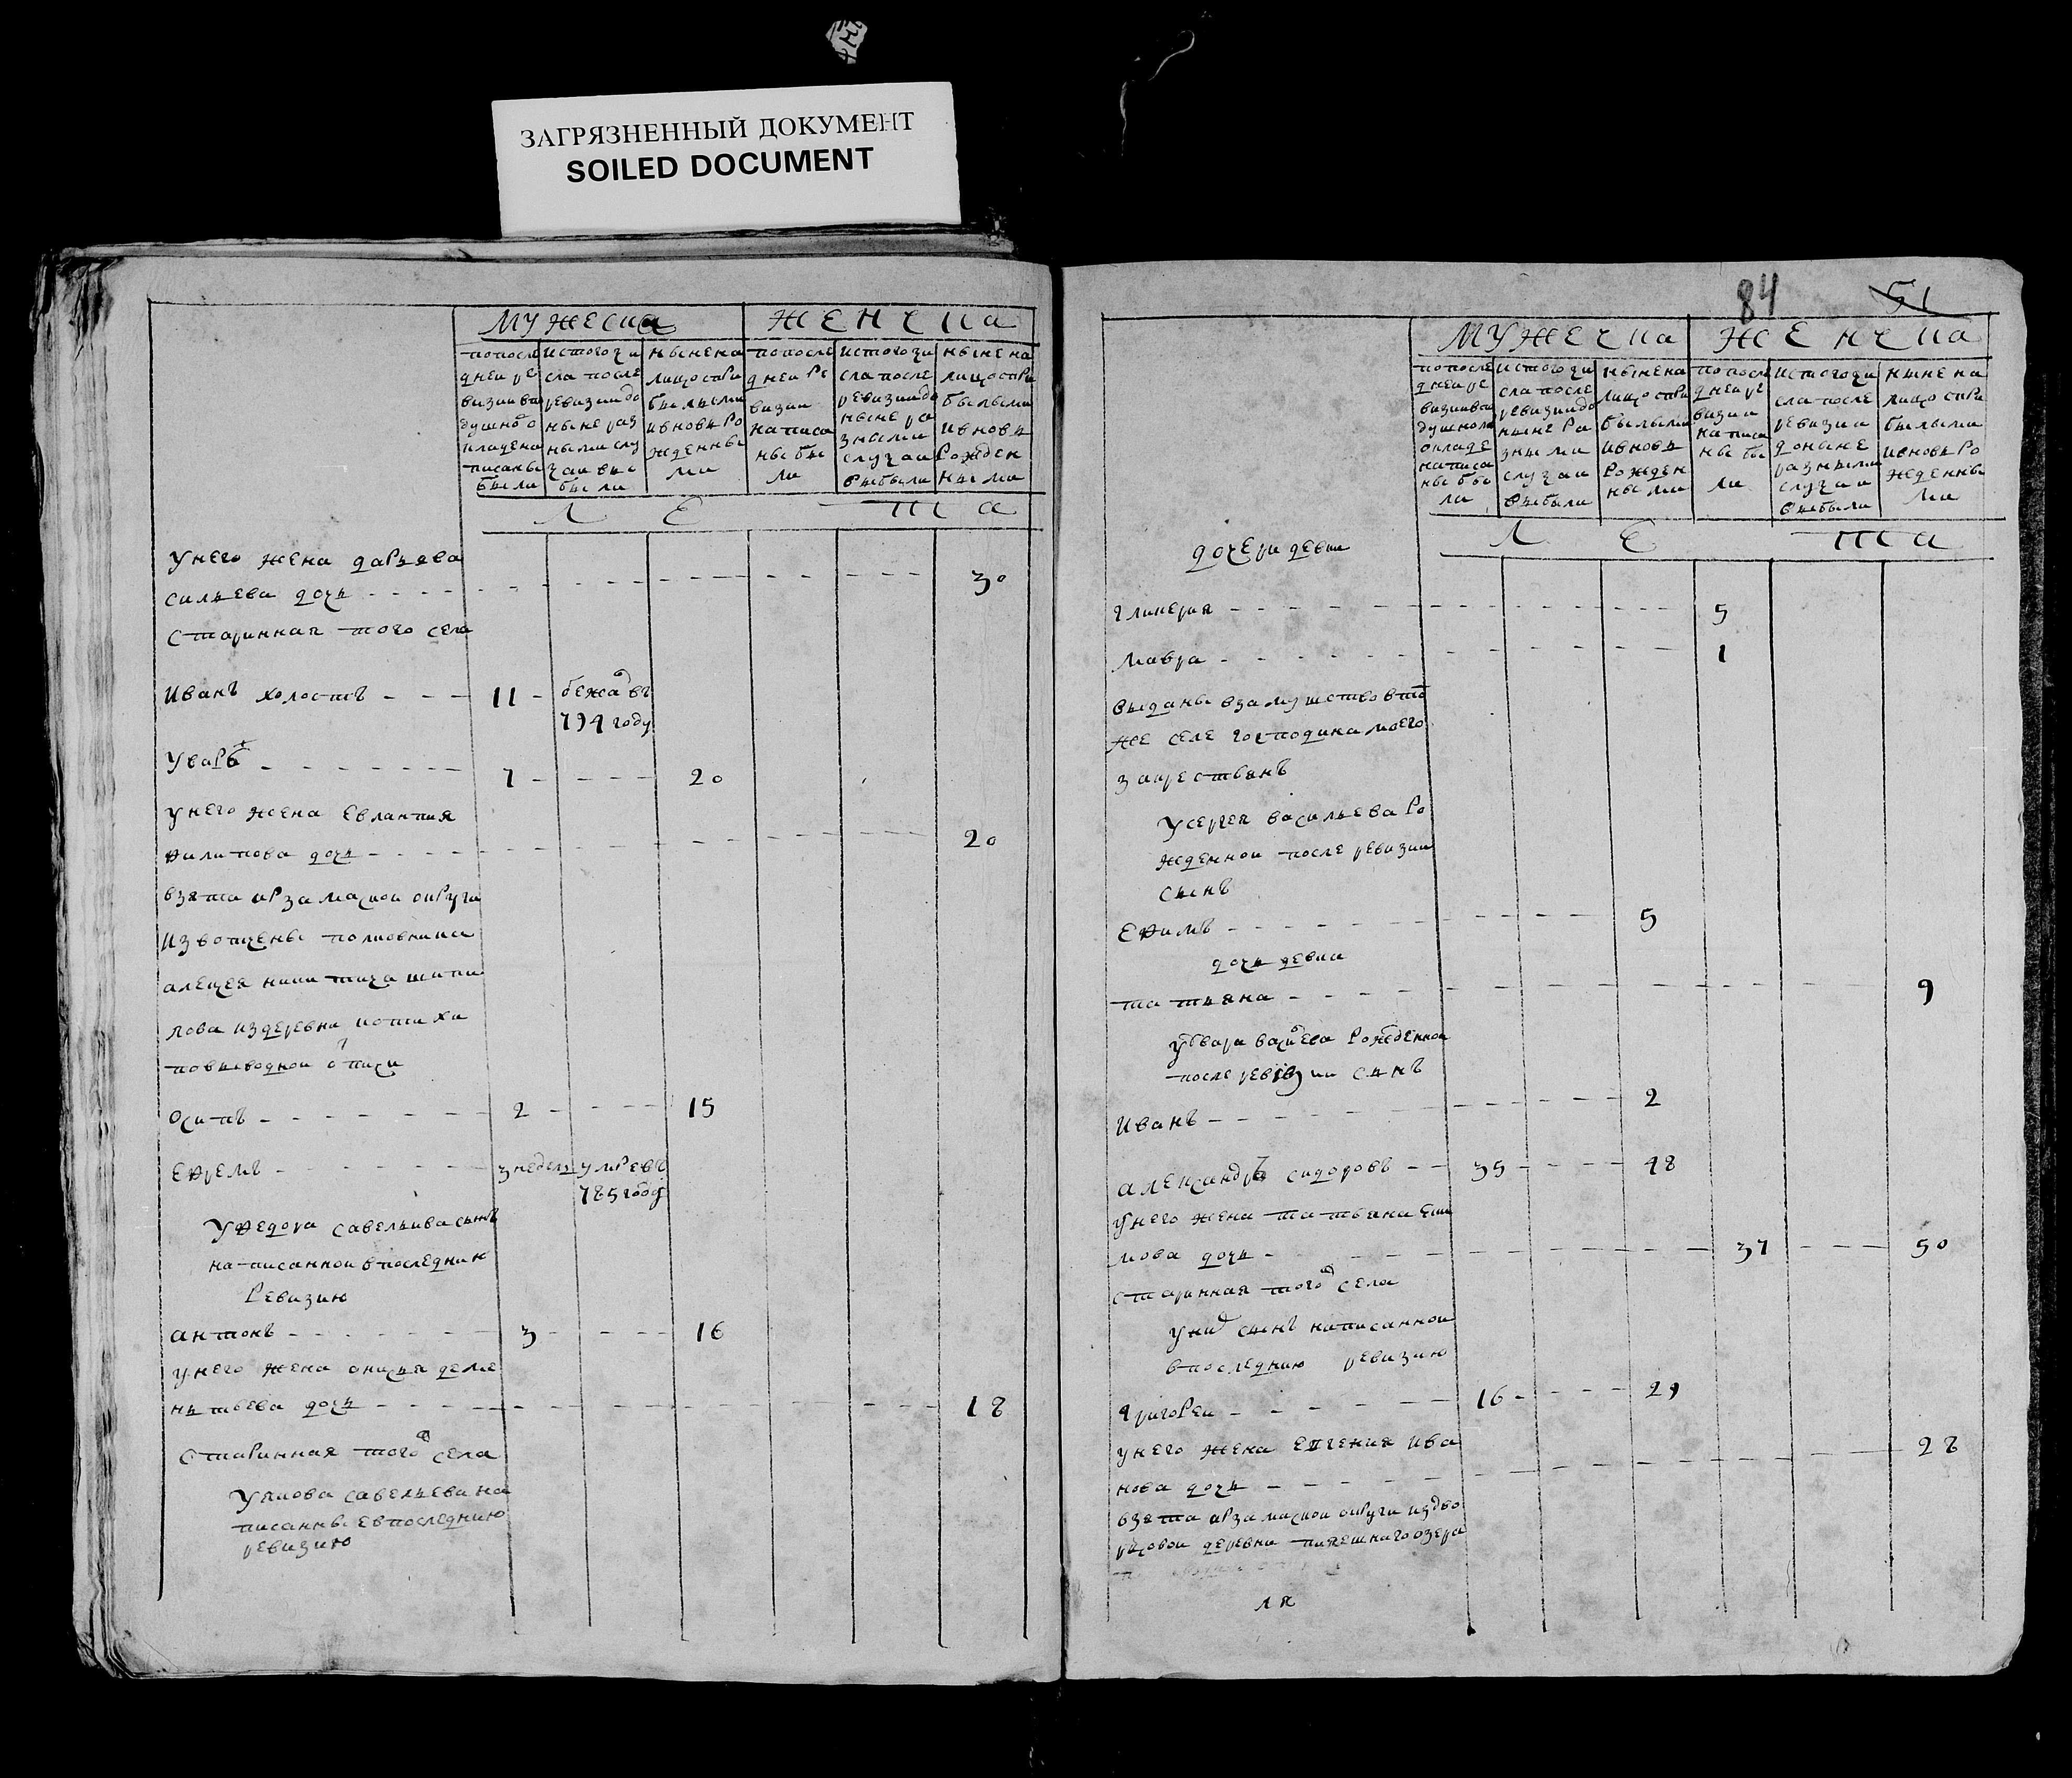 ЗАГРЯЗНЕННЫЙ ДОКУМЕНТ
SOILED DOCUMENT
мужеска
женска
попосле
дней ре
визии вп
душно о
кладе на
писаны
были
истогочи
сла после
ревизии до
ныне раз
ными слу
чаи вы
были
ныне на
лицо спри
былыми
ивновь ро
жденны
ми
попосле
дней ре
визии
написа
ны бы
ли
истогочи
сла после
ревизии до
ныне ра
зными
случаи
выбыли
ныне на
лицо спри
былыми
ивновь
рожден
ными
Л Е Т а
унего жена дарья ва
сильева дочь 30
старинная того села
иванъ холостъ 11 бежа в
794 году
уваръ 7 20
унего жена евлампия
филипова дочь 20
взята арзамаской округи
извотчены полковника
алексея никитича шипи
лова издеревни
повыводной отписи
осипъ 2 15
ефремъ 3 недел умре въ
785 году
уфедора савельива сынъ
написанной впоследнию
ревизию
антонъ 3 16
унего жена анисья деме
нтьева дочь 18
старинная того села
уякова савельева на
писанные впоследнию
ревизию
84 51
мужеска
женска
попосле
дней ре
визии вп
душном
окладе
написа
ны бы
ли
истогочи
сла после
ревизии до
ныне ра
зными
случаи
выбыли
ныне на
лицо спри
былыми
ивновь
рожден
ными
попосле
дней ре
визии
написа
ны бы
ли
истогочи
сла после
ревизии
доныне
разными
случаи
выбыли
ныне на
лицо спри
былыми
ивновь ро
жденны
ми
Л Е Т а
дочери девки
гликерия 5
мавра 1
выданы взамужство вто
же селе господина моего
закрестьянъ
усергея васильева ро
жденной после ревизии
сынъ
ефимъ 5
дочь девка
татьяна 9
уувара васильева рожденной
после ревизии сынъ
иванъ 2
александръ сидоровъ 35 48
унего жена татьяна еки
мова дочь 37 50
старинная того села
уних сынъ написанной
впоследнию ревизию
григорей 16 29
унего жена евгения ива
нова дочь 28
взята арзамаской округи издво
рцовой деревни пиявешнаго озера